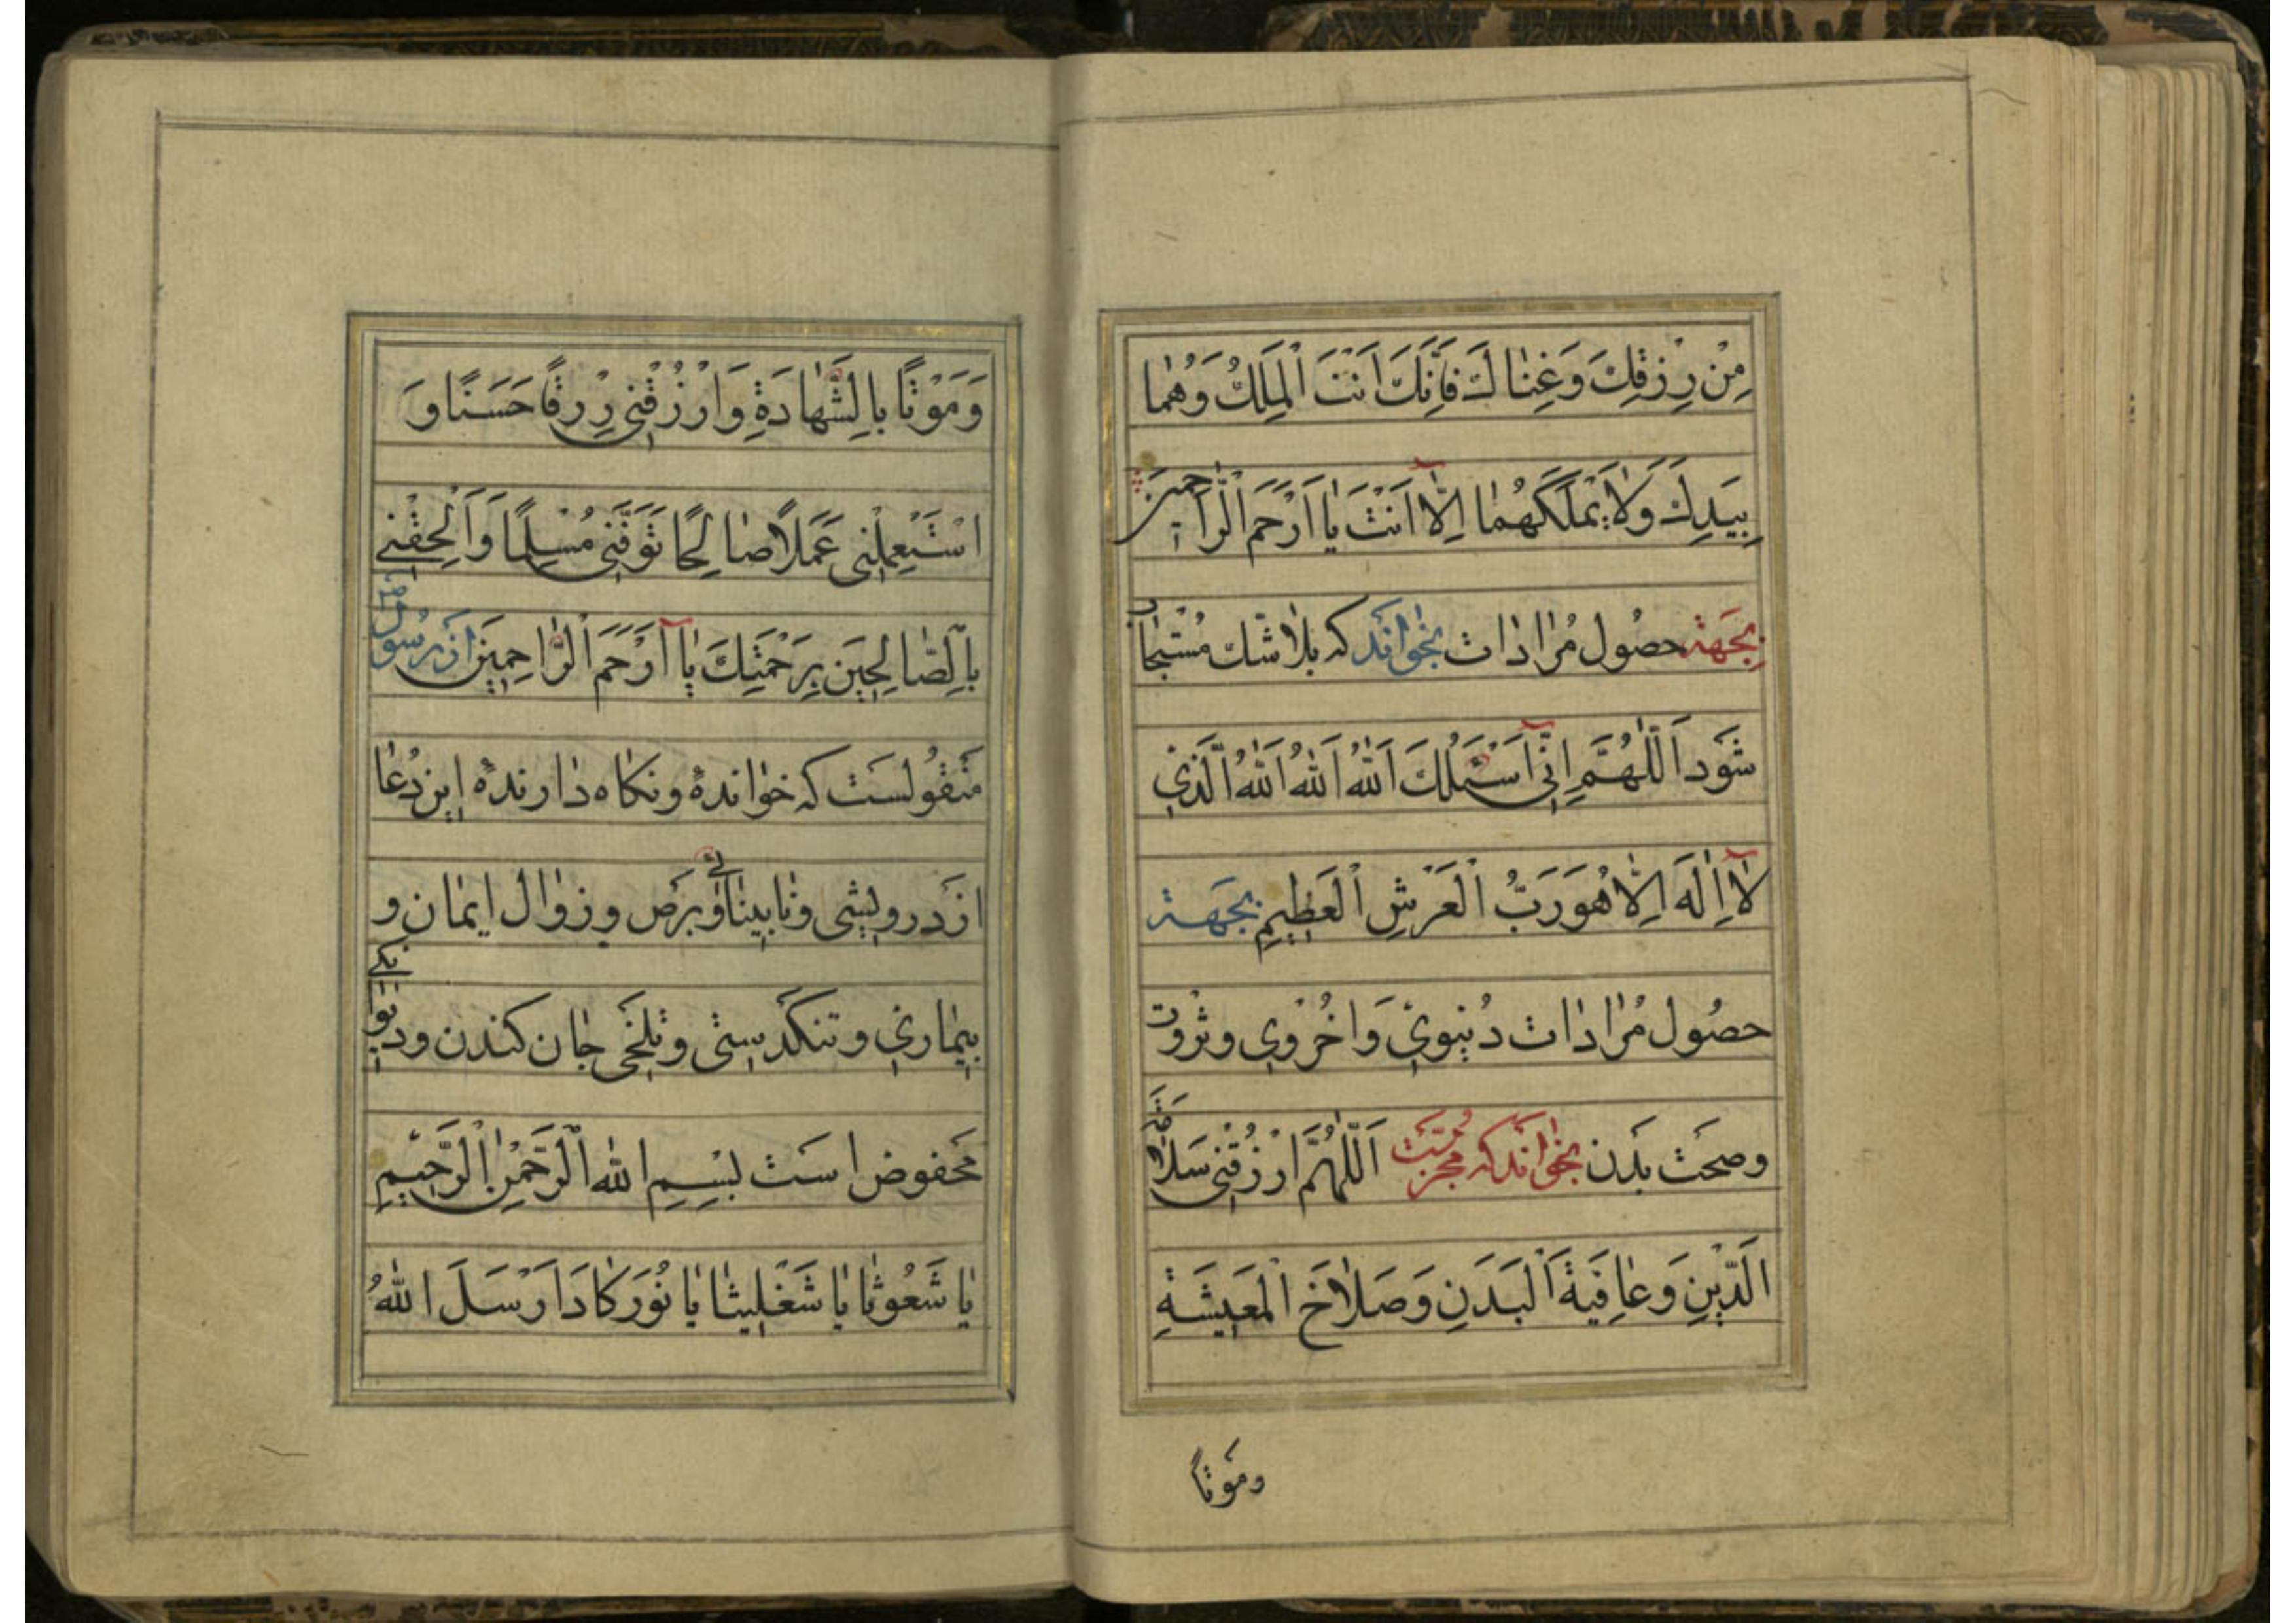 مِنْ رِزْقِكَ وَغِنٰا لَكَ فَاِنَّكَ اَنْتَ الْمَلِكُ وَهُمٰا
بِيَدِكَ وَلاٰ يَمْلَكَهُمٰا اِلاّٰ اَنْتَ يٰا اَرْحَمَ الْرّٰاحِمِينَ
بِجَهَة حصُول مُرٰادٰات بخٰوٰانَد كه بلاٰ شّك مُسْتجٰاب
شَوَد اَللّٰهُمَّ اِنّٖي اَسْئَلُكَ اَللّٰهُ اَللّٰهُ اَللّٰهُ الَّذٖي
لاٰ اِلٰهَ اِلاّٰ هُوَ رَبُّ الْعَرْشِ الْعَظٖيمِ بجَهَة
حصُول مُرٰادٰات دُنيوٖي وَاخُرْوٖي وثرْوَت
وصحَت بَدَن بخٰوٰانَد كه مُجرّبَت اَللّٰهُمَّ ارْزُقْنٖي سَلاٰمَةَ
الَدّٖينِ وَعٰافِيَةَ اَلْبَدَنِ وَصَلاٰحَ الْمَعٖيشَةِ
ومَوتاً
وَمَوْتاً بِالشَّهٰادَةِ وَارْزُقْنٖي رِزْقاً حَسَنًا وَ
اسْتَعْمِلْنٖي عَمَلاً صٰالِحًا تَوَفَّنٖي مُسْلِمًا وَاَلْحِقْنٖي
بِالصّٰالِحٖينَ بِرَحْمَتِكَ يٰا اَرْحَمَ الْرّٰاحِمٖينَ از رسُول
مَنقُولسَت كه خوٰاندهٔ ونكٰاه دٰارندهٔ اين دُعٰا
از درويشٖي ونٰابينٰائے وبَرَص وزوٰال ايمٰان و
بيمٰارٖي وتنكَدستٖي وتلخٖي جٰان كندن وديوٰانكے
مَحفوض اسَت بِسْمِ اللّٰه الْرَّحْمٰنِ الْرَّحٖيمِ
يٰا شَعُوثٰا يٰا شَغَلٖيثٰا يٰا نُوُرَ كٰا دَ اَرْسَلَ اللّٰهُ